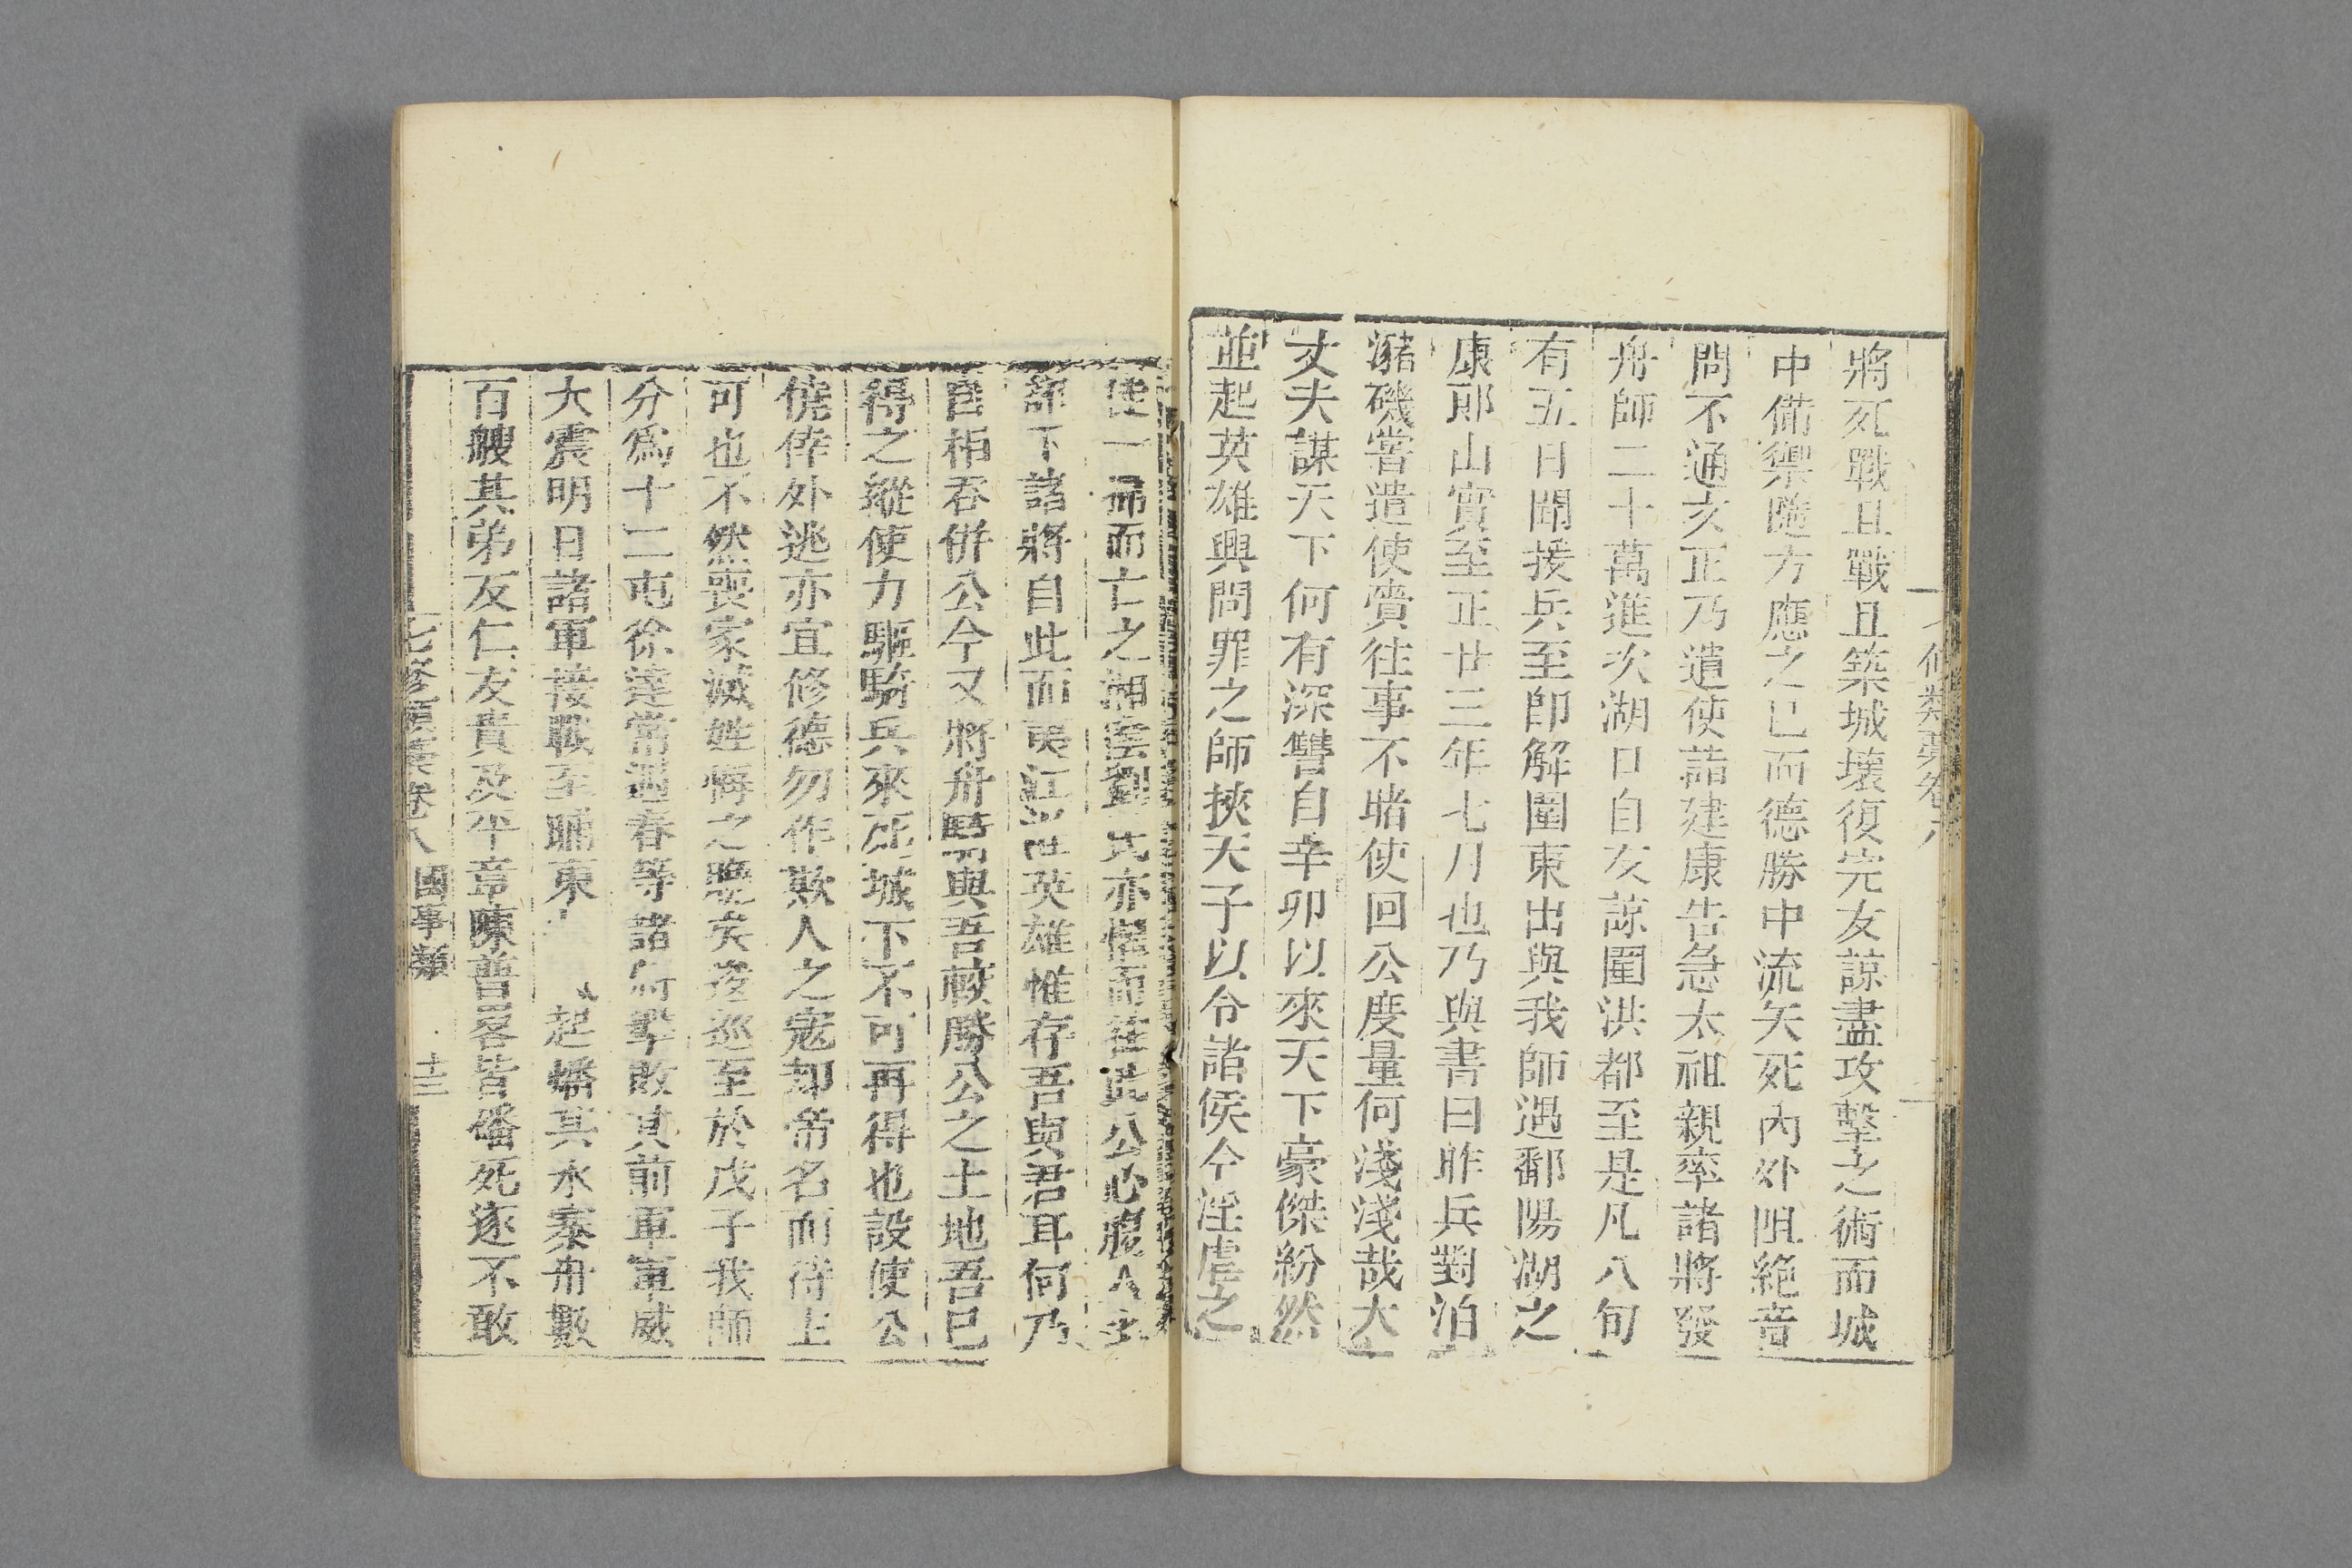 將死戰且戰且築城壞復完友諒盡攻擊之術而城
中備禦隨方應之已而德勝中流矢死內外阻絶音
問不通友正乃遣使詣建康告急太祖親率諸將發
舟師二十萬進次湖口自友諒圍洪都至是凡八旬
有五日聞援兵至卽解圍東出與我師遇鄱陽湖之
康郎山實至正廿三年七月也乃與書曰昨兵對泊
瀦磯嘗遣使賫往事不睹使回公度量何淺淺哉大
丈夫謀天下何有深讐自辛卯以來天下豪傑紛然
並起英雄興問罪之師挾天子以令諸侯今淫虐之
一歸而亡之湖劉氏亦懼而徃公必
部下諸將自此而英雄惟存吾與君耳何乃
自相吞併公今又將舟與吾較勝公之土地吾已
得之縱使力驅騎兵來城下不可再得也設使公
僥倖外逃亦宜修德勿作欺人之寇却帝名而待主
可也不然喪家滅姓悔之晚矣至於戊子我師
分爲十二屯徐達常遇春等諸將擊敗其前軍軍威
大震明日諸軍接戰至晡東起燔其水寨舟數
百艘其弟友仁友貴及平章陳普畧皆燔死遂不敢
七修類藁卷八 國事類 十三